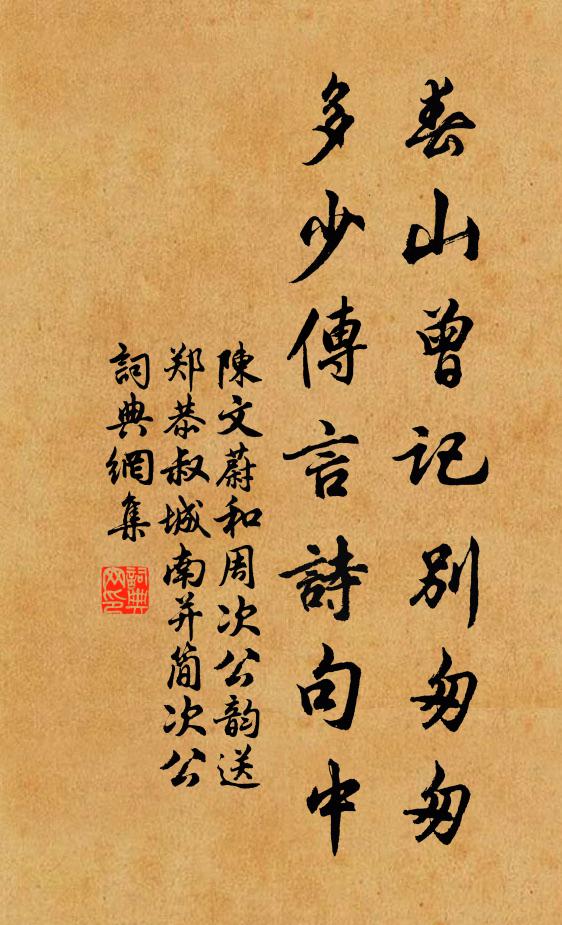 春山曾記別匆匆
多少傳言詩句中
陳文蔚和周次公韵送
郑恭叔城南并簡次公
詞典網集
詞典网印